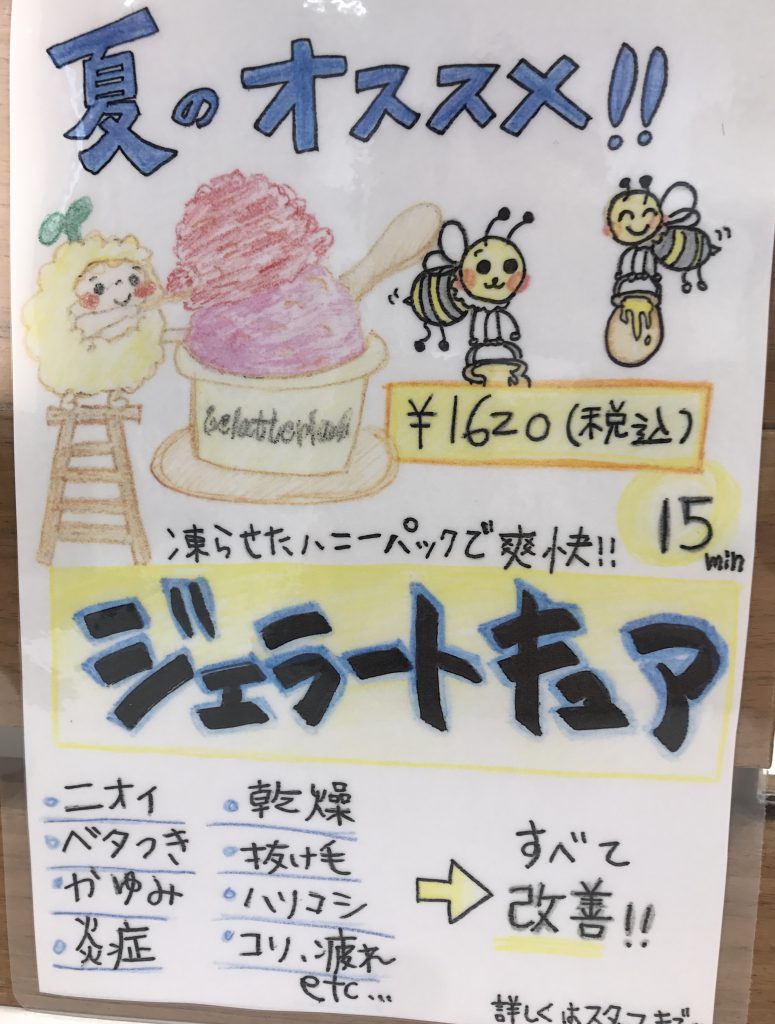 夏のオススメ!!
¥1620(税込)
15min
凍らせたハニーパックで爽快!!
ジェラートキュア
・ニオイ
・ベタつき
・かゆみ
・炎症
・乾燥
・抜け毛
・ハリコシ
・コリ、疲れ
etc...
すべて
改善!!
詳しくはスタッフまで